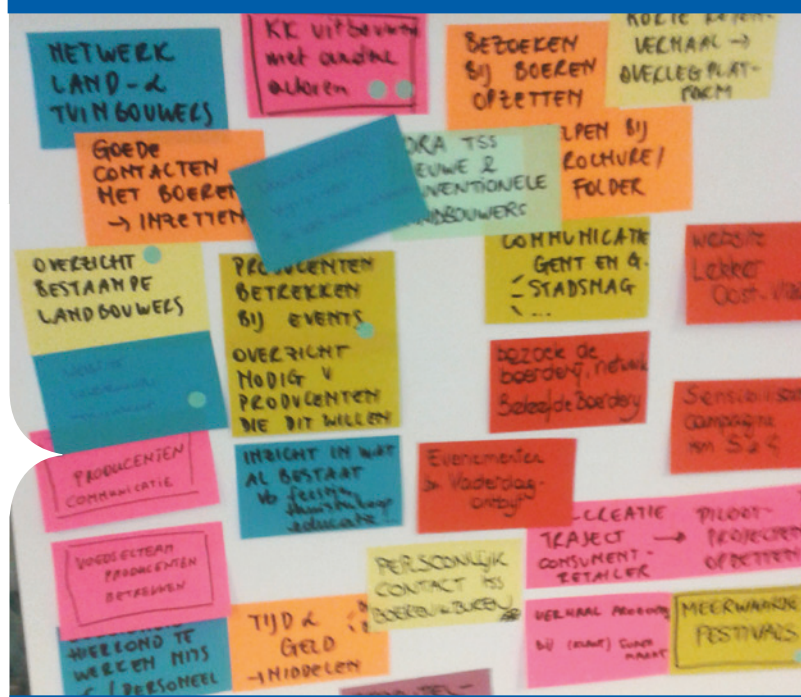 NETWERK
LAND- &
TUINBOUWERS
KK uitbouwen
met andere
actoren
BEZOEKEN
BIJ BOEREN
OPZETTEN
KORTE KETEN-
VERHAAL →
OVERLEGPLAT-
FORM
GOEDE
CONTACTEN
MET BOEREN
→ INZETTEN
ORA TSS
EUWE &
NVENTIONELE
NDBOUWERS
LPEN BIJ
ROCHURE/
FOLDER
OVERZICHT
BESTAANDE
LANDBOUWERS
PRODUCENTEN
BETREKKEN
BIJ EVENTS
OVERZICHT
NODIG V
PRODUCENTEN
DIE DIT WILLEN
COMMUNICATIE
GENT EN G.
- STADSMAG
- ...
website
Lekker
Oost-Vla
bezoek de
boerderij, netwerk
Beleefde Boerderij
Sensibilisa
campagne
PRODUCENTEN
COMMUNICATIE
INZICHT IN WAT
AL BESTAAT
vb feesten
educatie
Evenementen
bv. Vaderdag-
ontbijt
-CREATIE
TRAJECT →
CONSUMENT-
RETAILER
PILOOT-
PROJECTEN
OPZETTEN
VOEDSELTEAM
PRODUCENTEN
BETREKKEN
PERSOONLIJK
CONTACT TSS
BOER EN BUREN
HIERROND TE
WERKEN MITS
€ / PERSONEEL
TIJD &
GELD
→ MIDDELEN
VERHAAL
BIJ (KLANT)
MEERWAARDE
FESTIVALS